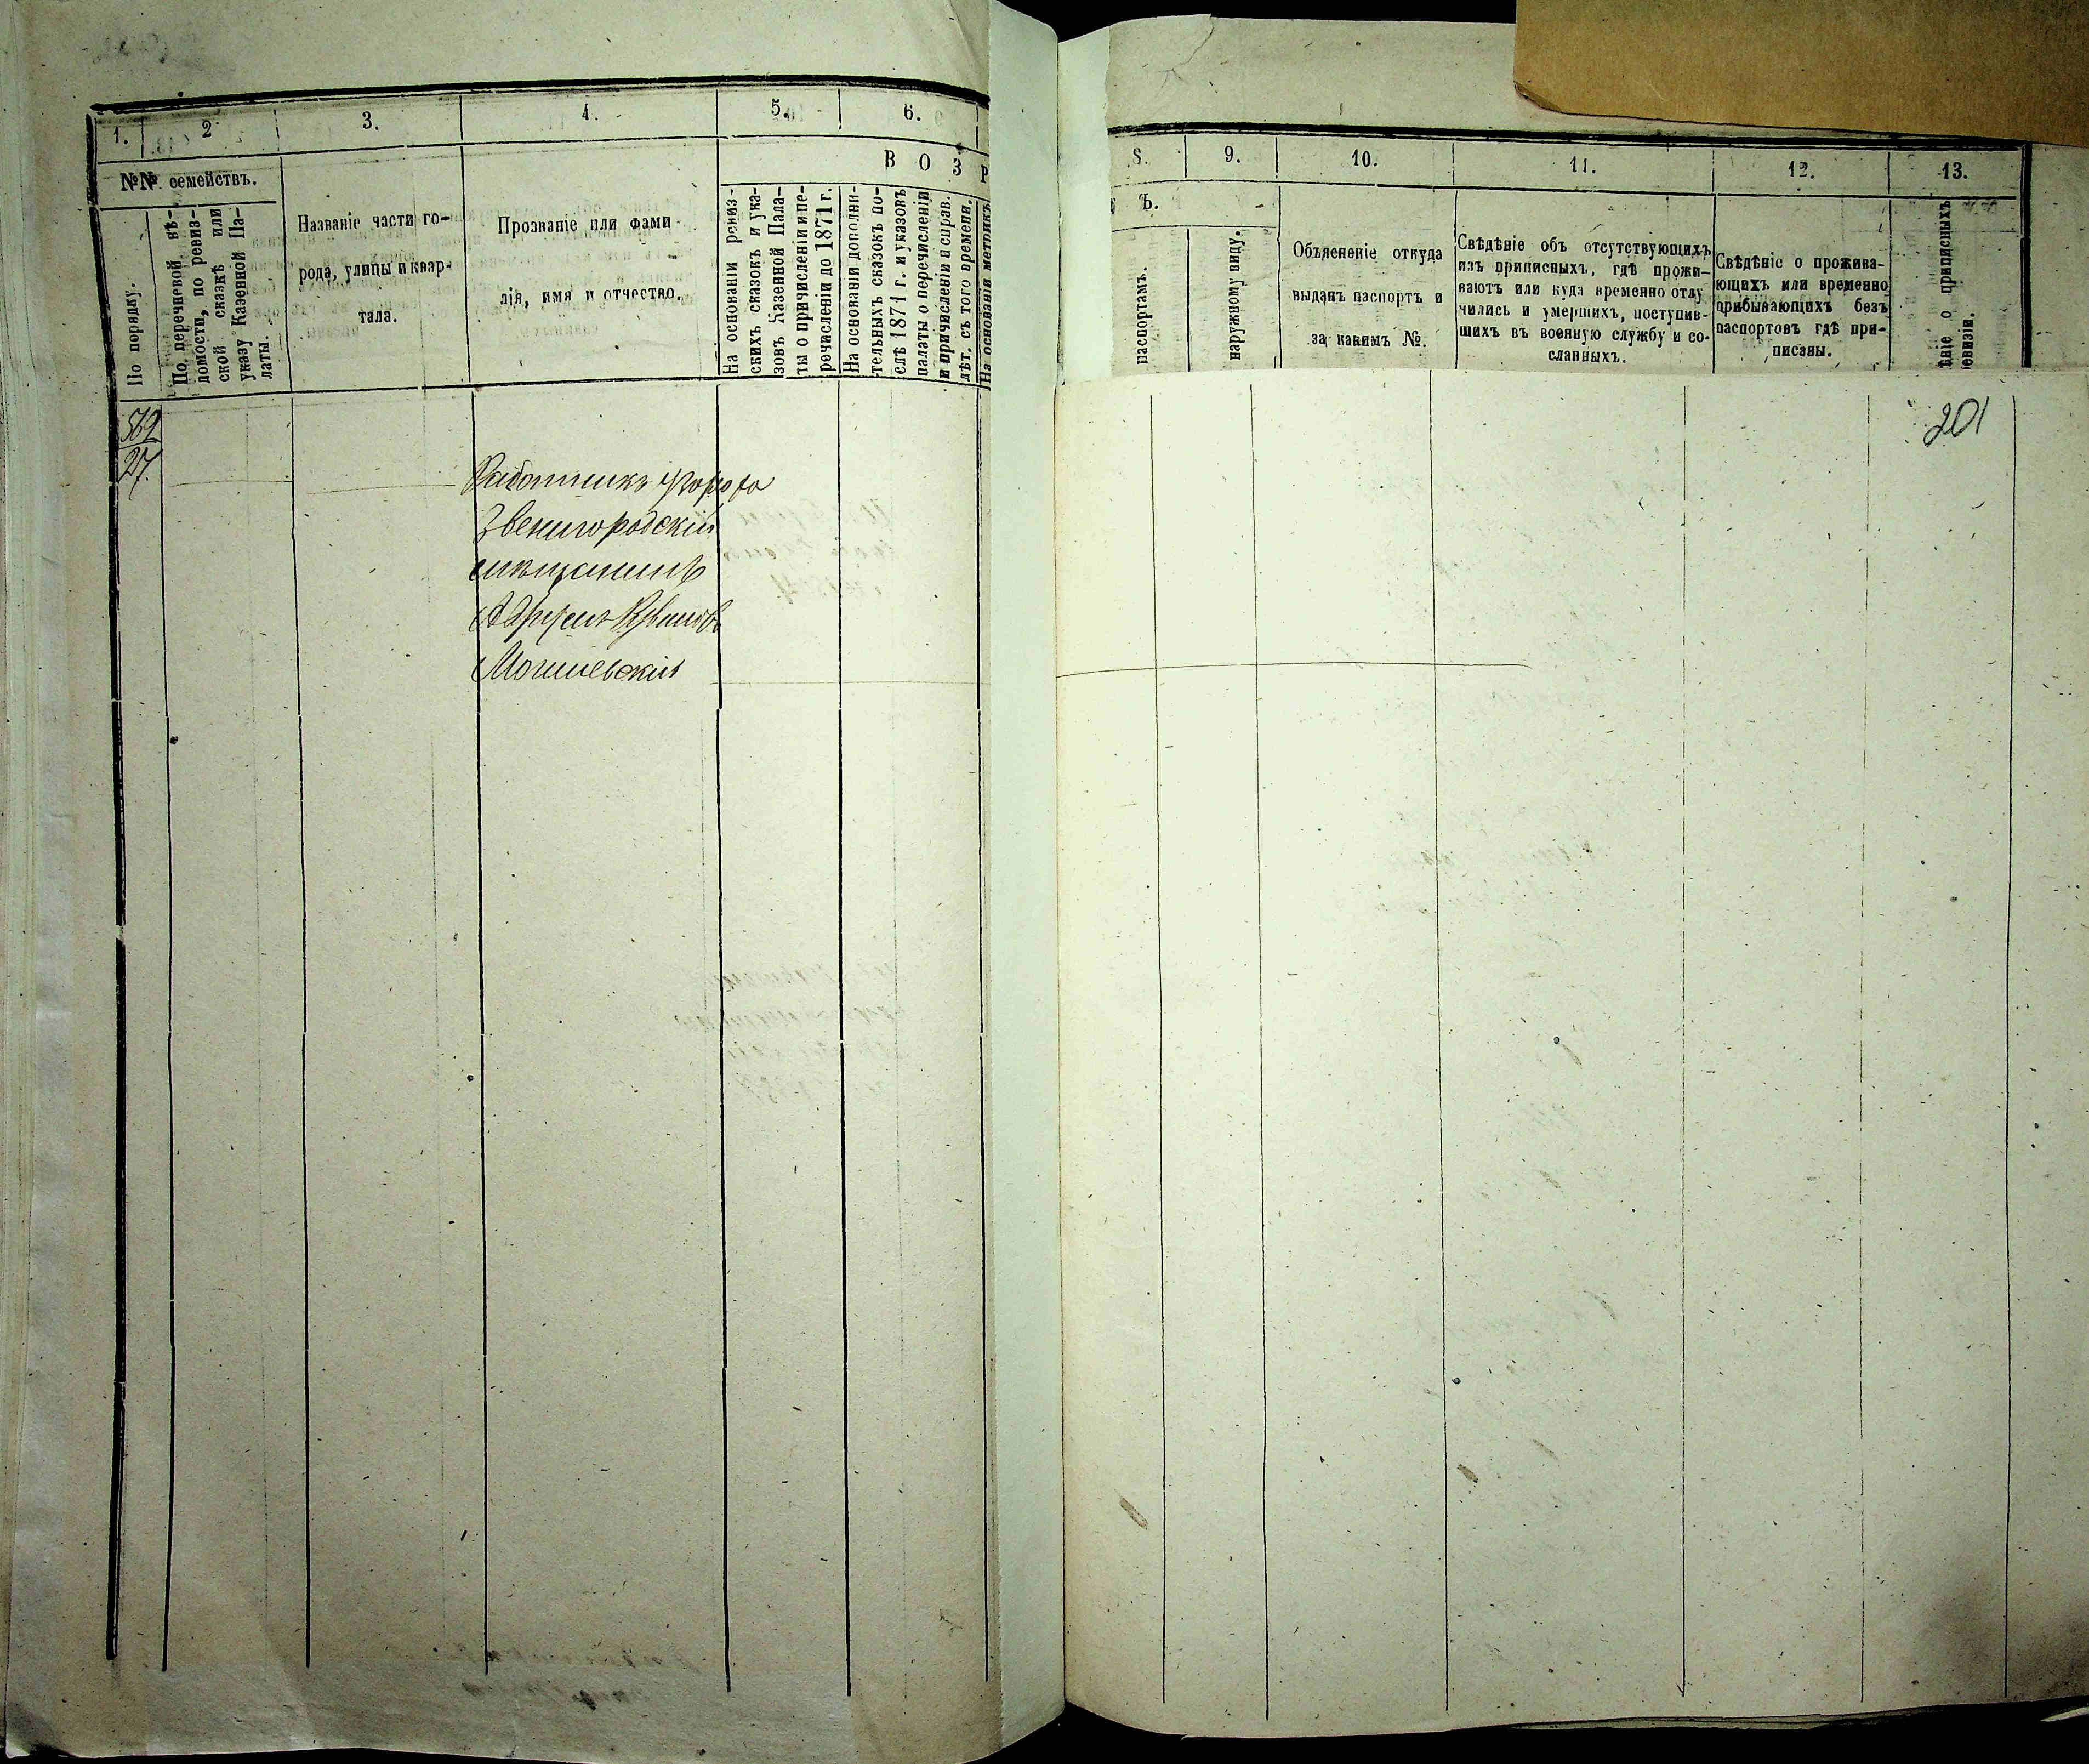 1.
2
3.
4.
5.
6.
ВОЗР
№№ семействъ.
По порядку.
По перечневой вѣ-
домости, по ревиз-
ской сказкѣ или
указу Казенной Па-
латы.
Названіе части го-
рода, улицы и квар-
тала.
Прозваніе или фами-
лія, имя и отчество.
На основаніи ревиз-
скихъ сказокъ и ука-
зовъ Казенной Пала-
ты о причисленіи и пе-
речисленіи до 1871 г.
На основаніи дополни-
тельныхъ сказокъ по-
слѣ 1871 г. и указовъ
палаты о перечисленіи
и причисленіи и справ.
лѣт. съ того времени.
На основаніи метрикъ
27.
Работникъ
Звенигородскій
мѣщанинъ
8.
9.
10.
11.
12.
13.
Ъ.
паспортамъ.
наружному виду.
Объясненіе откуда
выданъ паспортъ и
за какимъ №.
Свѣдѣніе объ отсутствующихъ
изъ приписныхъ, гдѣ прожи-
ваютъ или куда временно отлу
чились и умершихъ, поступив-
шихъ въ военную службу и со-
сланныхъ.
Свѣдѣніе о прожива-
ющихъ или временно
прибывающихъ безъ
паспортовъ гдѣ при-
писаны.
ѣніе о приписныхъ
ревизіи.
201